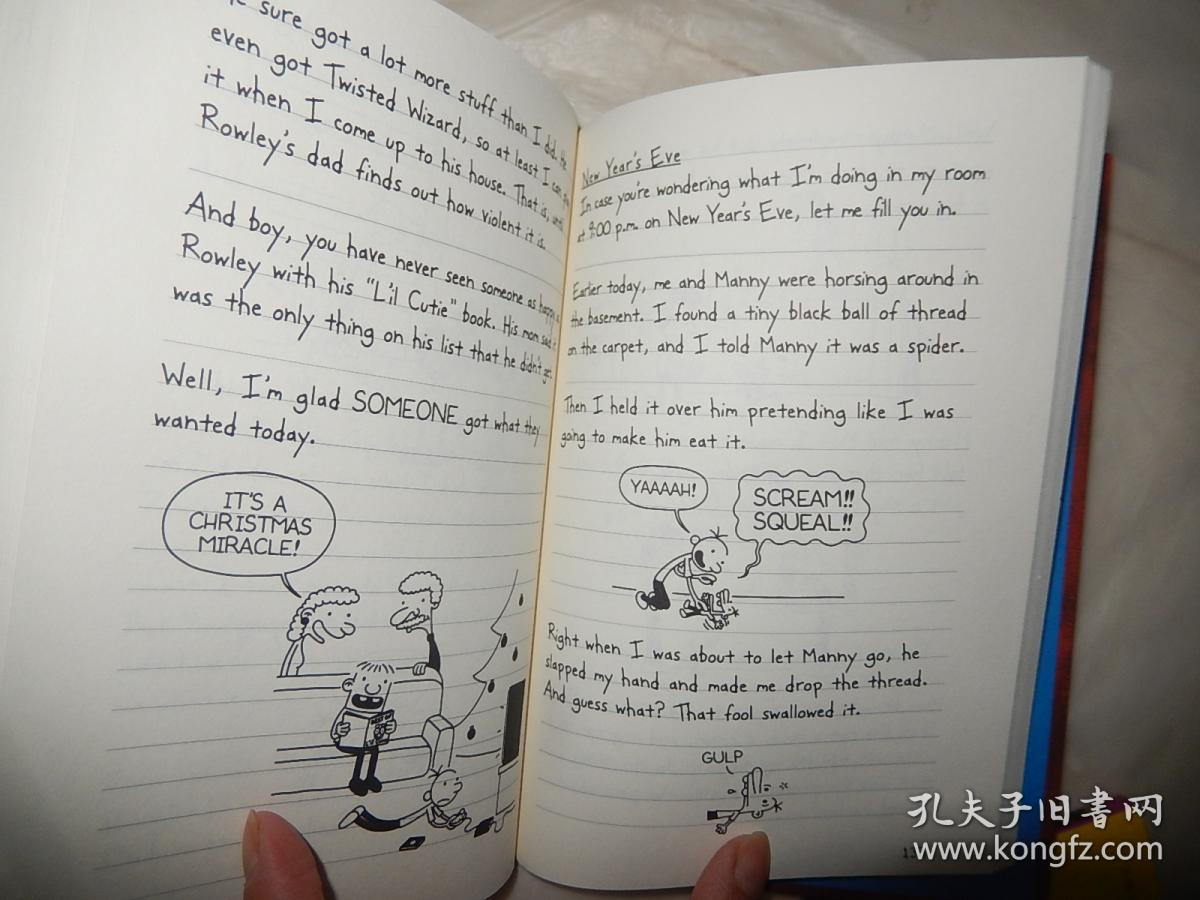 sure got a lot more stuff than I did. He
even got Twisted Wizard, so at least I can
it when I come up to his house. That is, until
Rowley's dad finds out how violent it is.
And boy, you have never seen someone as happy as
Rowley with his "L'il Cutie" book. His mom said it
was the only thing on his list that he didn't get.
Well, I'm glad SOMEONE got what they
wanted today.
IT'S A
CHRISTMAS
MIRACLE!
New Year's Eve
In case you're wondering what I'm doing in my room
at 9:00 p.m. on New Year's Eve, let me fill you in.
Earlier today, me and Manny were horsing around in
the basement. I found a tiny black ball of thread
on the carpet, and I told Manny it was a spider.
Then I held it over him pretending like I was
going to make him eat it.
YAAAAH!
SCREAM!!
SQUEAL!!
Right when I was about to let Manny go, he
slapped my hand and made me drop the thread.
And guess what? That fool swallowed it.
GULP
孔夫子旧書网
www.kongfz.com